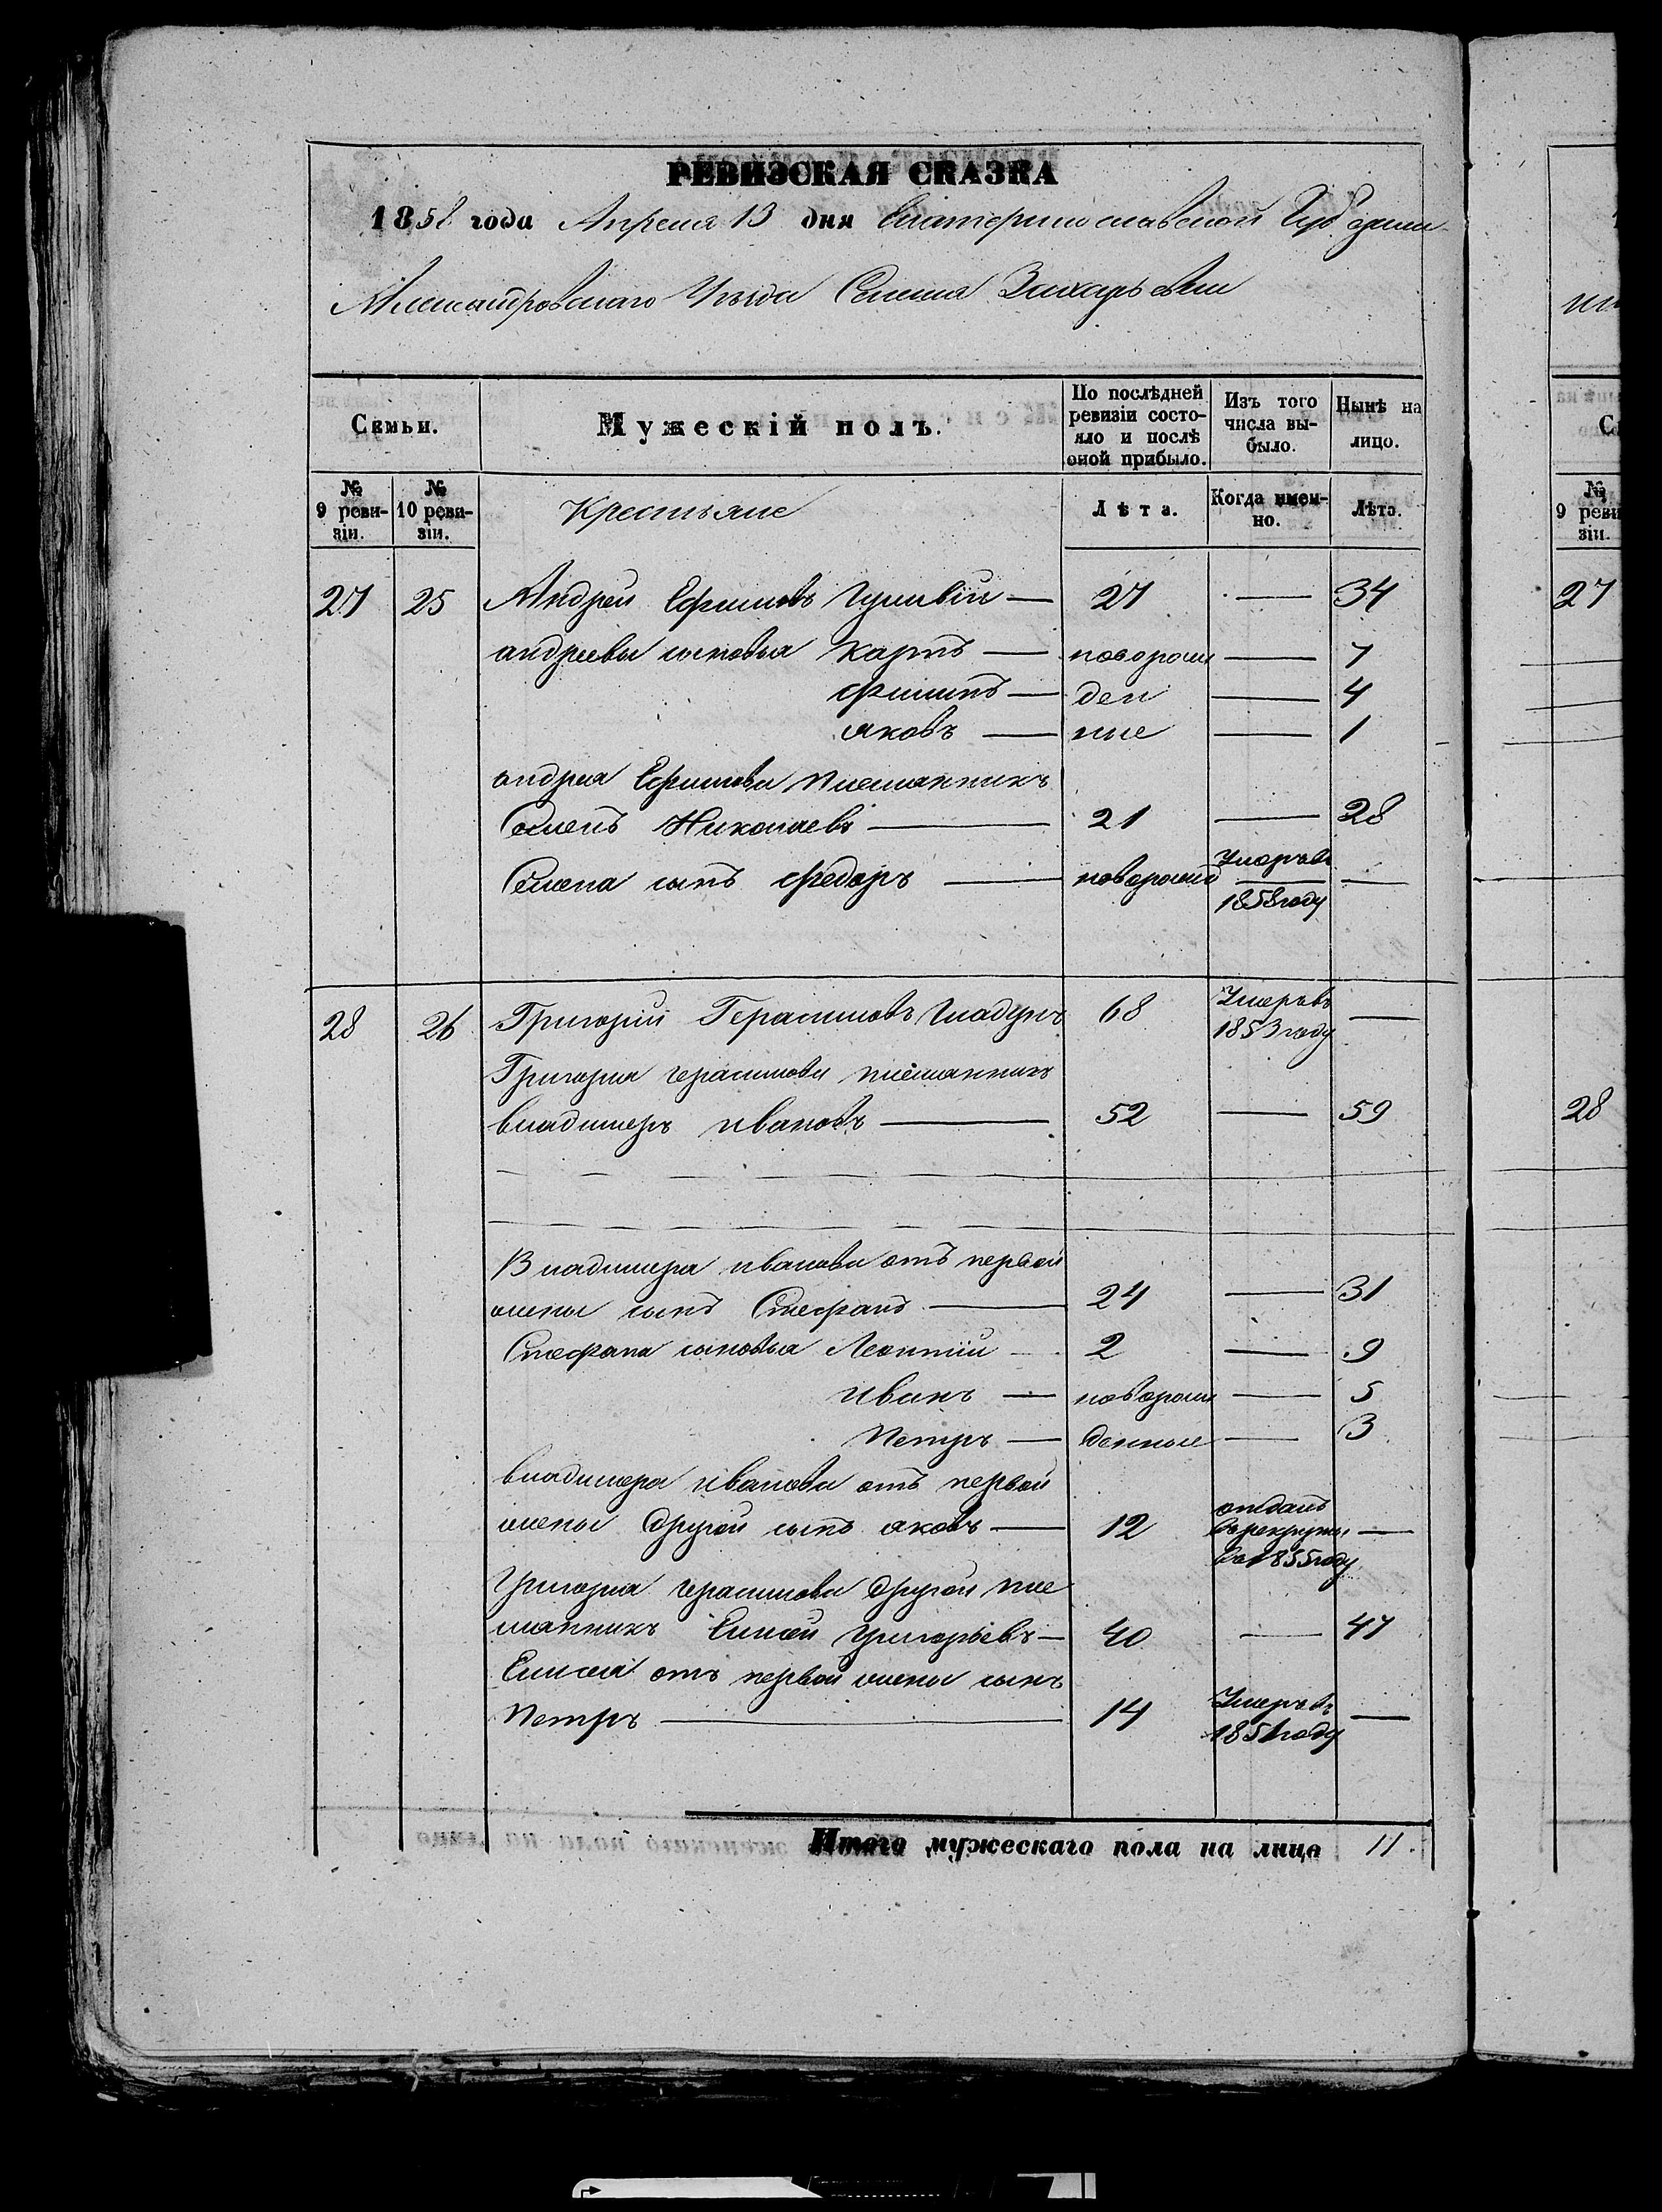 РЕВИЗСКАЯ СКАЗКА
1858 года Апреля 13 дня Екатеринославской Губернии
Александровскаго Уѣзда Селенія Захарьевки
Семьи.
Мужескій полъ.
По послѣдней ревизіи состояло и послѣ оной прибыло.
Изъ того числа выбыло.
Нынѣ на лицо.
№ 9 ревизіи.
№ 10 ревизіи.
Крестьяне
Лѣта.
Когда именно.
Лѣта.
27 25 Андрей Ефимовъ — 27 — 34
андреевы сыновья Карпъ — новорож — 7
филипъ — ден — 4
яковъ — ные — 1
андрея Ефимова племянникъ
Семенъ Николаевъ — 21 — 28
Семена сынъ федоръ — новорожд Умеръ в 1858 году —
28 26 Григорій Герасимовъ Гладунъ 68 Умеръ въ 1853 году —
Григорія герасимова племянникъ
владимеръ ивановъ — 52 — 59
Владимера иванова отъ первой
жены сынъ Стефанъ — 24 — 31
Стефана сыновья Леонтій — 2 — 9
иванъ — новорож — 5
Петръ — денные — 3
владимера иванова отъ первой
жены другой сынъ яковъ — 12 отданъ въ рекруты въ 1855 году —
Григорія герасимова другой пле
мянникъ Елисей григорьевъ — 40 — 47
Елисея отъ первой жены сынъ
Петръ — 14 Умеръ въ 1851 году —
Итого мужескаго пола на лицо 11.
№ 9 реви
зіи.
27
28